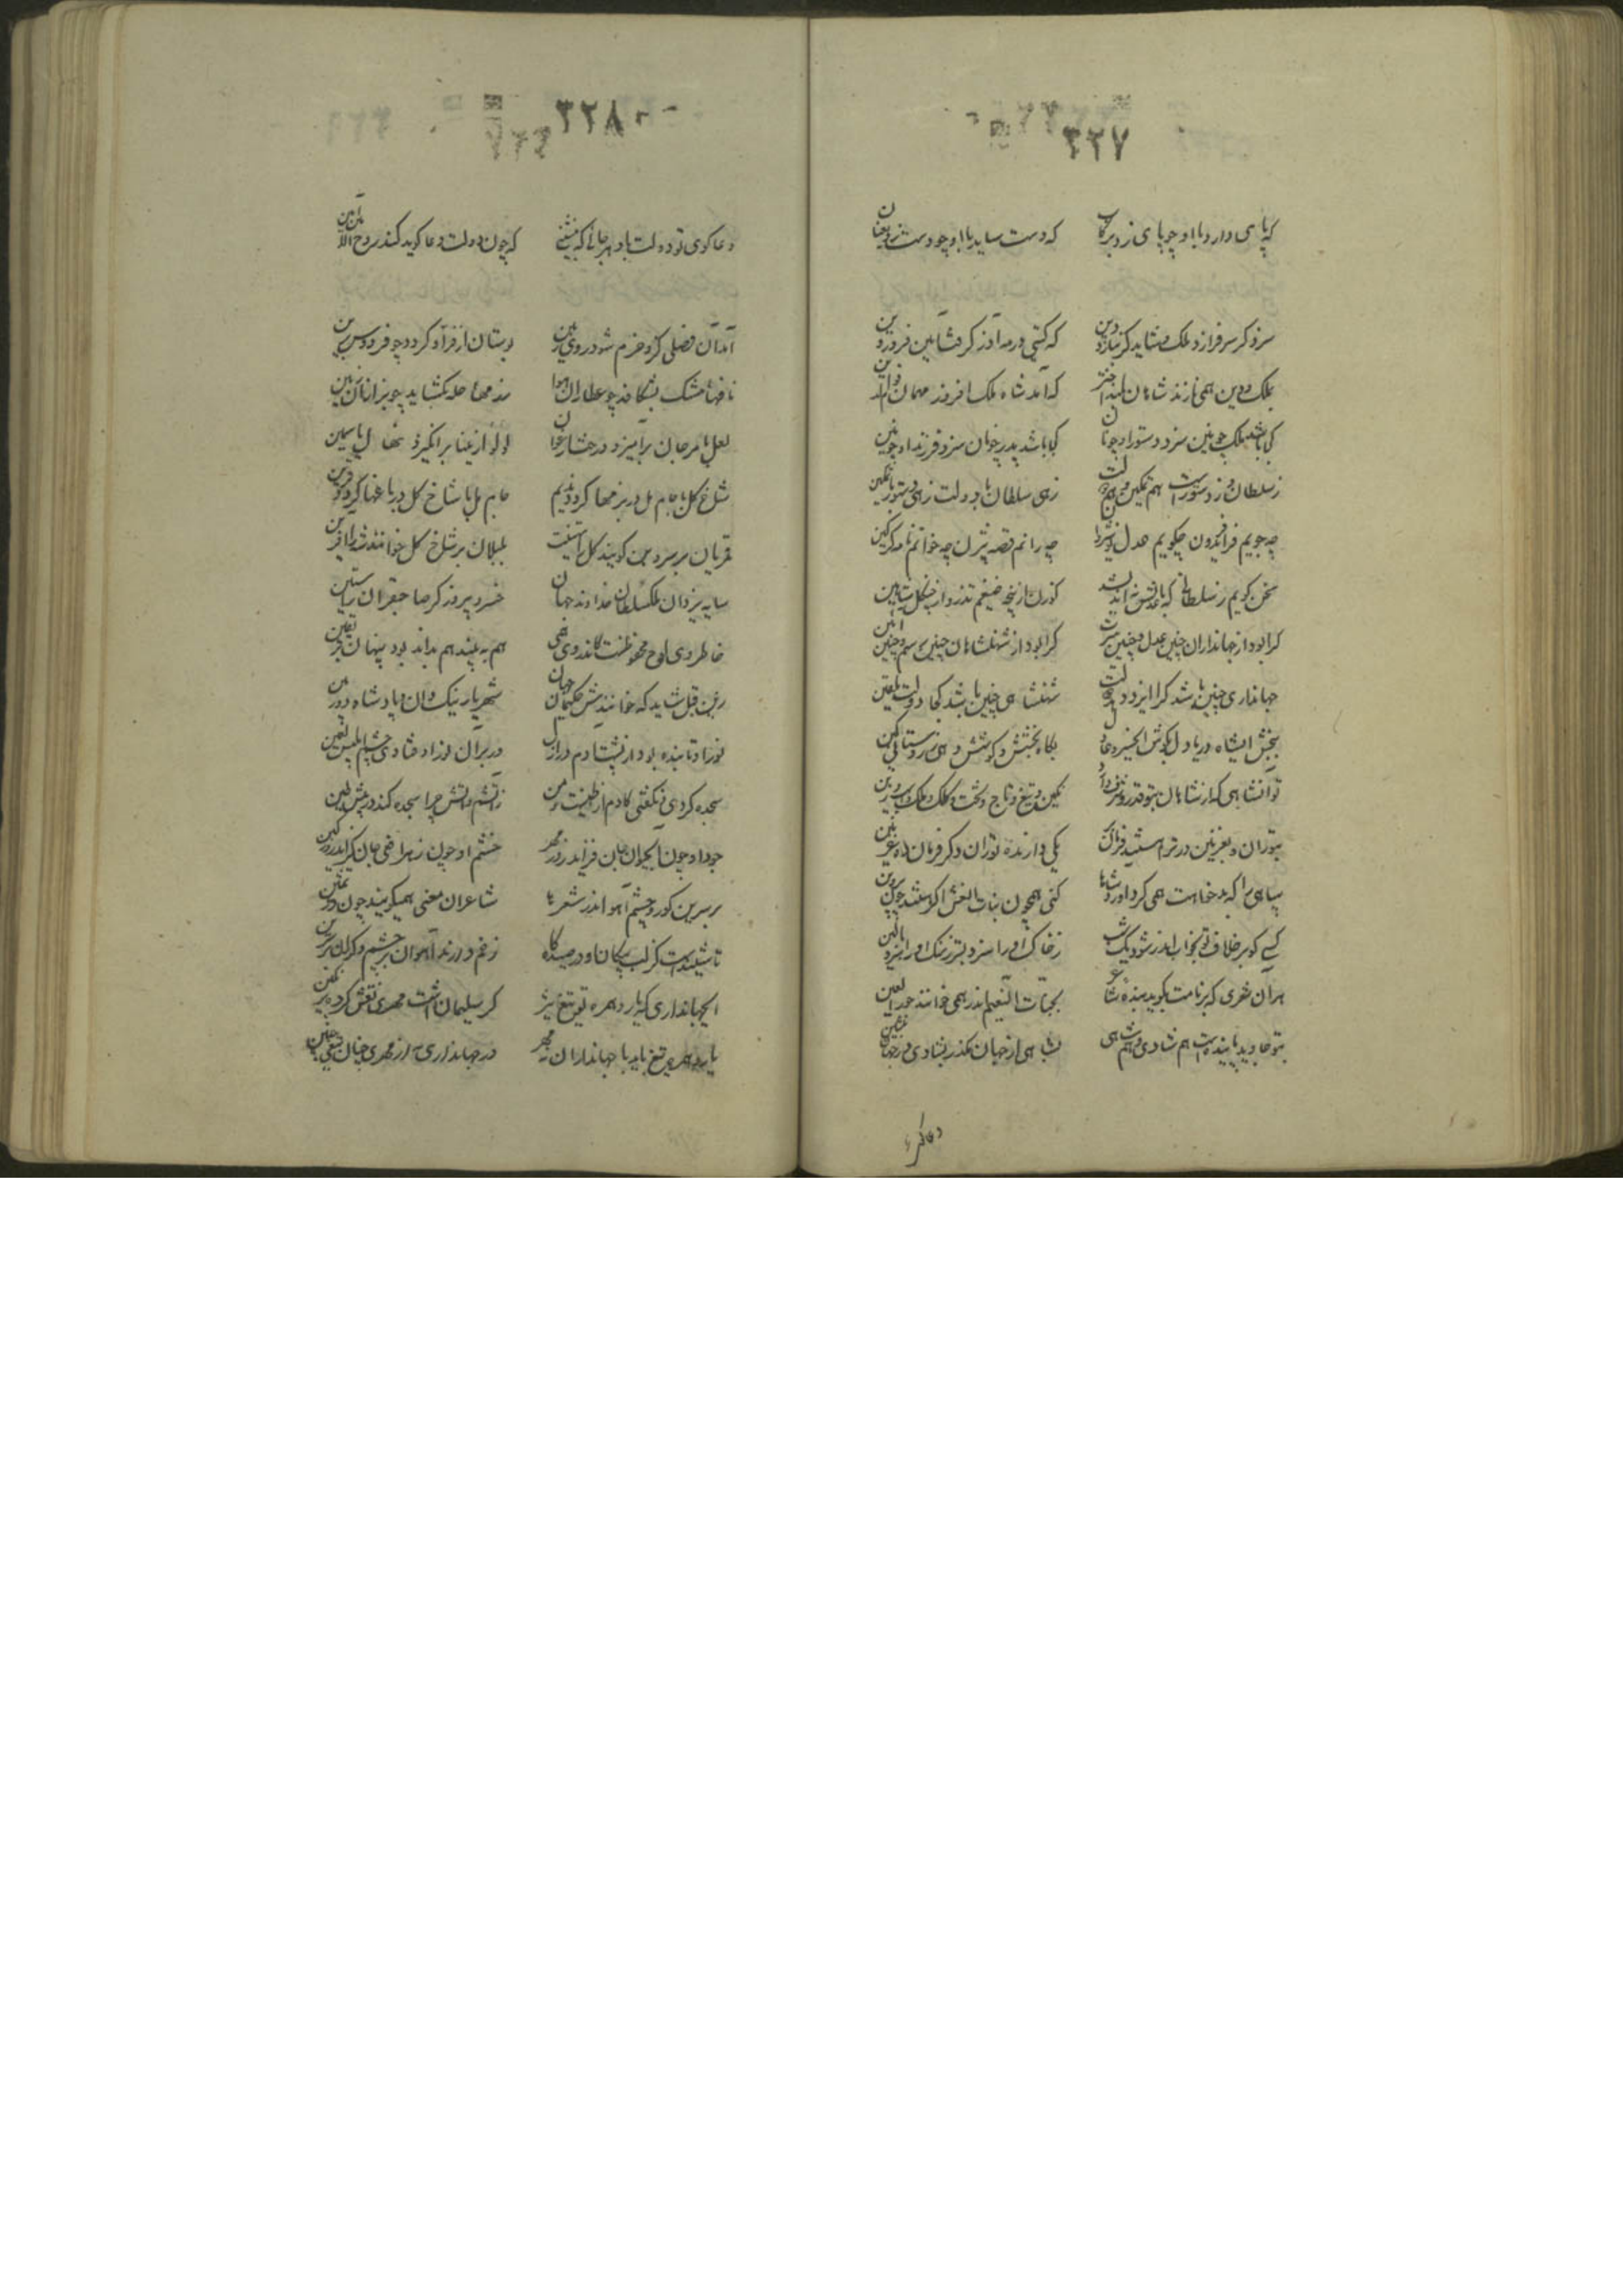 ۳۲۷
که پای دارد با او چو پای زد برکاب که دست ساید با او چو دست زد بعنان
سزد کر سرفرازد ملک و شاید کر بنازد دین که کیتی در مه آذر کرفت آیین فروردین
بملک و دین همی نازند شاهان بلند اختر که آمد شاه ملک افروز مهمان
کجا باشد ملک چونین سزد دستور او چونان کجا باشد پدر چونان سزد فرزند او چونین
ز سلطان و ز دستورست هم تمکین و هم دولت زهی سلطان با دولت زهی دستور با تمکین
چه جویم فر افریدون چکویم عدل نوشروان چه رانم قصه بیژن چه خوانم نامه کرکین
سخن کویم ز سلطانی که با عدلش نه اندیشد کوزن از پنجه ضیغم تذرو از چنکل شاهین
کرا بود از جهانداران چنین عدل و چنین سیرت کرا بود از شهنشاهان چنین رسم و چنین آئین
جهانداری چنین باشد کرا ایزد دهد دولت شهنشاهی چنین باشد کجا دولت
ببخشش ایشاه دریا دل بکوشش بکاه بخشش و کوشش
تو آنشاهی که از شاهان بتو قدر و شرف دارد نکین و تیغ و تاج و تخت و کلک و ملک و
بتوران و بغزنین در ترا هستند فرمانبر یکی دارنده توران دکر فرمان ده غزنین
سپاهی را که بدخواهت همی کرد آورد شاها کنی همچون بنات النعش اکر هستند چون پروین
کسی کو بر خلاف تو بخواب اندر شود یکشب ز خاک او را سزد بستر ز سنک او را سزد بالین
هر آن شعری که بر نامت بکوید بنده شاعر بجنات النعیم اندر همی خوانند حور العین
بتو جاوید پاینده است هم شادی و هم شاهی بشاهی از جهان مکذر بشادی در جهان بنشین
دعا کوی
۳۲۸
دعا کوی تو دولت باد هر جائی که بنشینی که چون دولت دعا کوید کند روح الامین آمین
آمد آن فصلی کزو خرم شود روی زمین بوستان از فر او کردد چو فردوس برین
نافهای مشک بشکافد چو عطاران هوا حله بکشاید چو بزازان زمین
لعل با مرجان برآمیزد درخت ارغوان لولو از مینا برانگیزد نهال یاسمین
شاخ کل با جام مل در بزمها کردد ندیم جام مل با شاخ کل در باغها کردد قرین
قمریان بر سرو بن کویند کل را تهنیت بلبلان بر شاخ کل خوانند شه را آفرین
سایه یزدان ملک سلطان خداوند جهان خسرو پیروز کر صاحبقران راستین
خاطر وی لوح محفوظست کاندر وی همی هم به بیند هم بداند بود پنهان
زین قبل شاید که خوانندش حکیمان جهان شهریار نیک دان و پادشاه دوربین
نور او تابنده بود از پشت آدم در ازل در بر آن نور اوفتادی چشم ابلیس لعین
سجده کردی و نکفتی کادم از طینست و من ز آتشم و آتش چرا سجده کند در پیش طین
جود او چون آب حیوان جان فزاید روز مهر خشم او چون زهر افعی جان کزاید روز کین
بر سرین کور و چشم آهو اندر شعرها شاعران معنی همی کویند چون در ثمین
تا شنیدست کز لب پیکان او در صیدکاه زخم دارند آهوان بر چشم و کوران بر سرین
ای جهانداری که یارد مهره تو تیغ تیز کر سلیمان داشت مهری نقش کرده بر نکین
یارد مهره تیغ باید با جهانداران نه مهر در جهانداری به از مهری چنان تیغی چنین